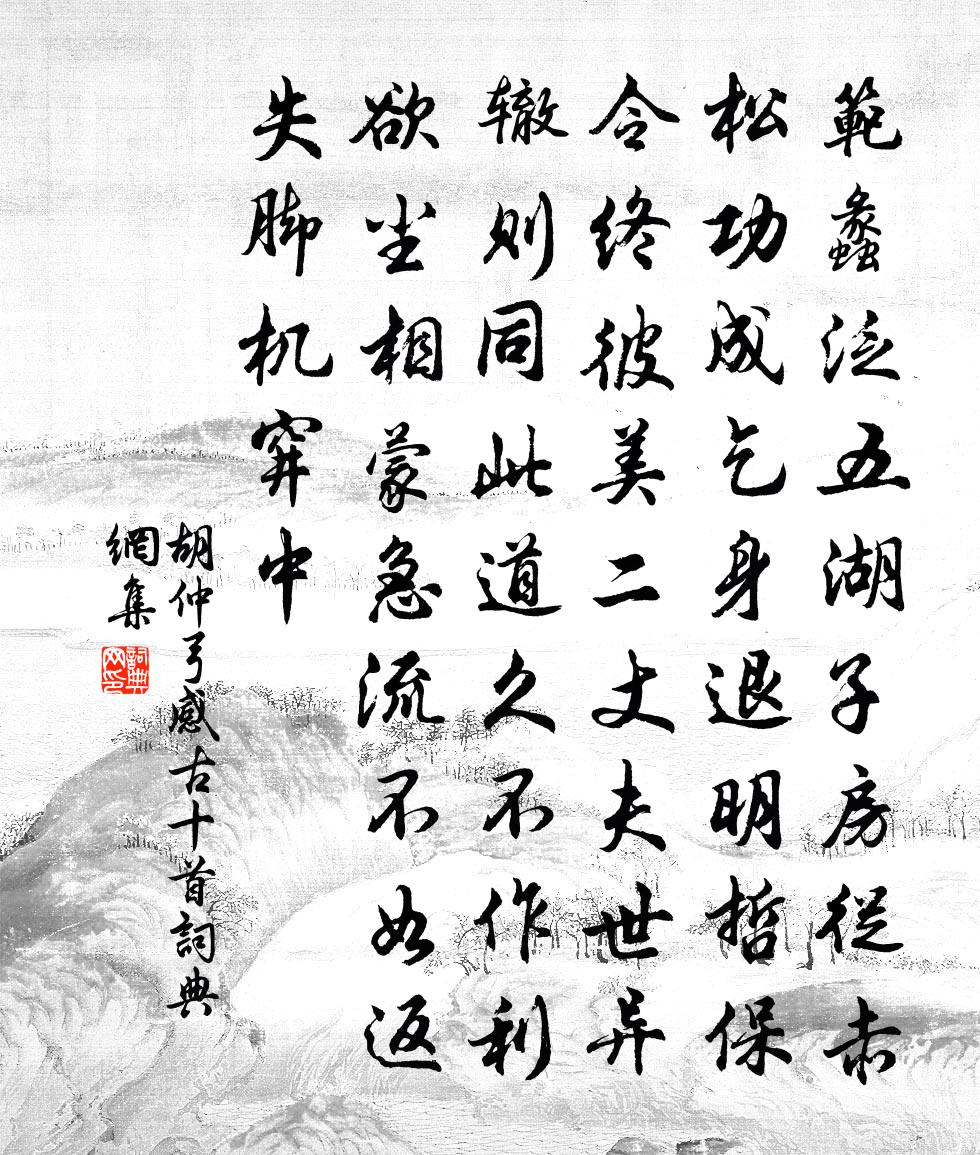 範蠡泛五湖子房從赤
松功成乞身退明哲保
令终彼美二丈夫世异
辙则同此道久不作利
欲坐相蒙急流不如返
失脚机穽中
胡仲弓感古十首詞典
網集
詞典
网印